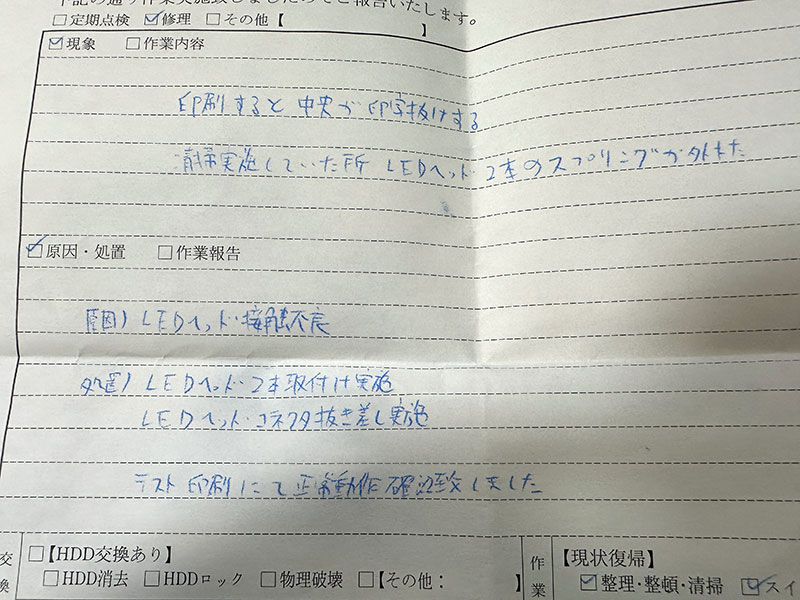 下記の通り作業実施致しましたのでご報告いたします。
□定期点検 ☑修理 □その他【 】
☑現象 □作業内容
印刷すると中央が印字抜けする
清掃実施していた所 LEDヘッド2本のスプリングが外れた
☑原因・処置 □作業報告
原因) LEDヘッド接触不良
処置) LEDヘッド2本取付け実施
LEDヘッドコネクタ抜き差し実施
テスト印刷にて正常動作確認致しました
交換 □【HDD交換あり】
□HDD消去 □HDDロック □物理破壊 □【その他: 】
作業 【現状復帰】
☑整理・整頓・清掃 ☑スイ